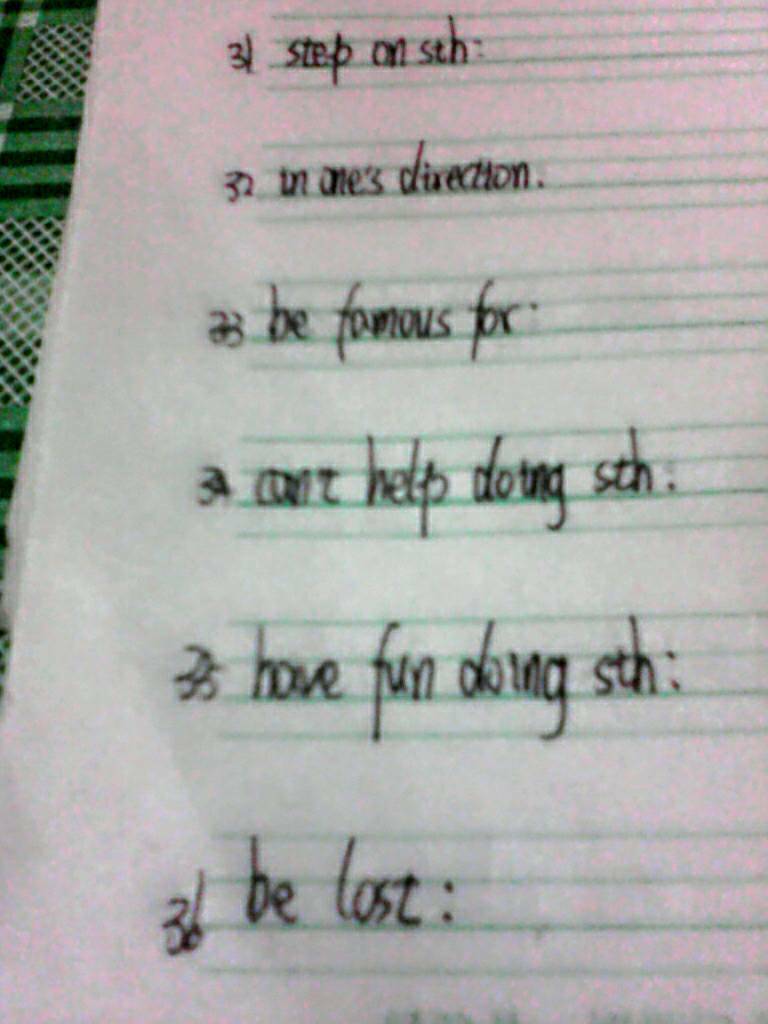 31 step on sth:
32 in one's direction.
33 be famous for:
34 can't help doing sth:
35 have fun doing sth:
36 be lost: